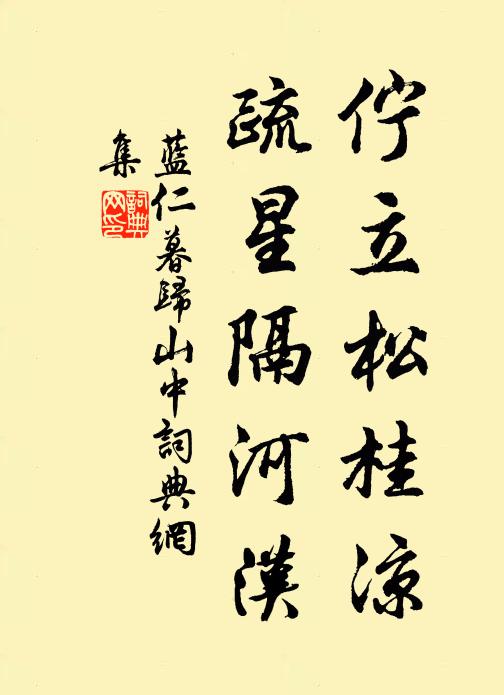 佇立松桂涼
疏星隔河漢
藍仁暮歸山中詞典網
集
詞典網印